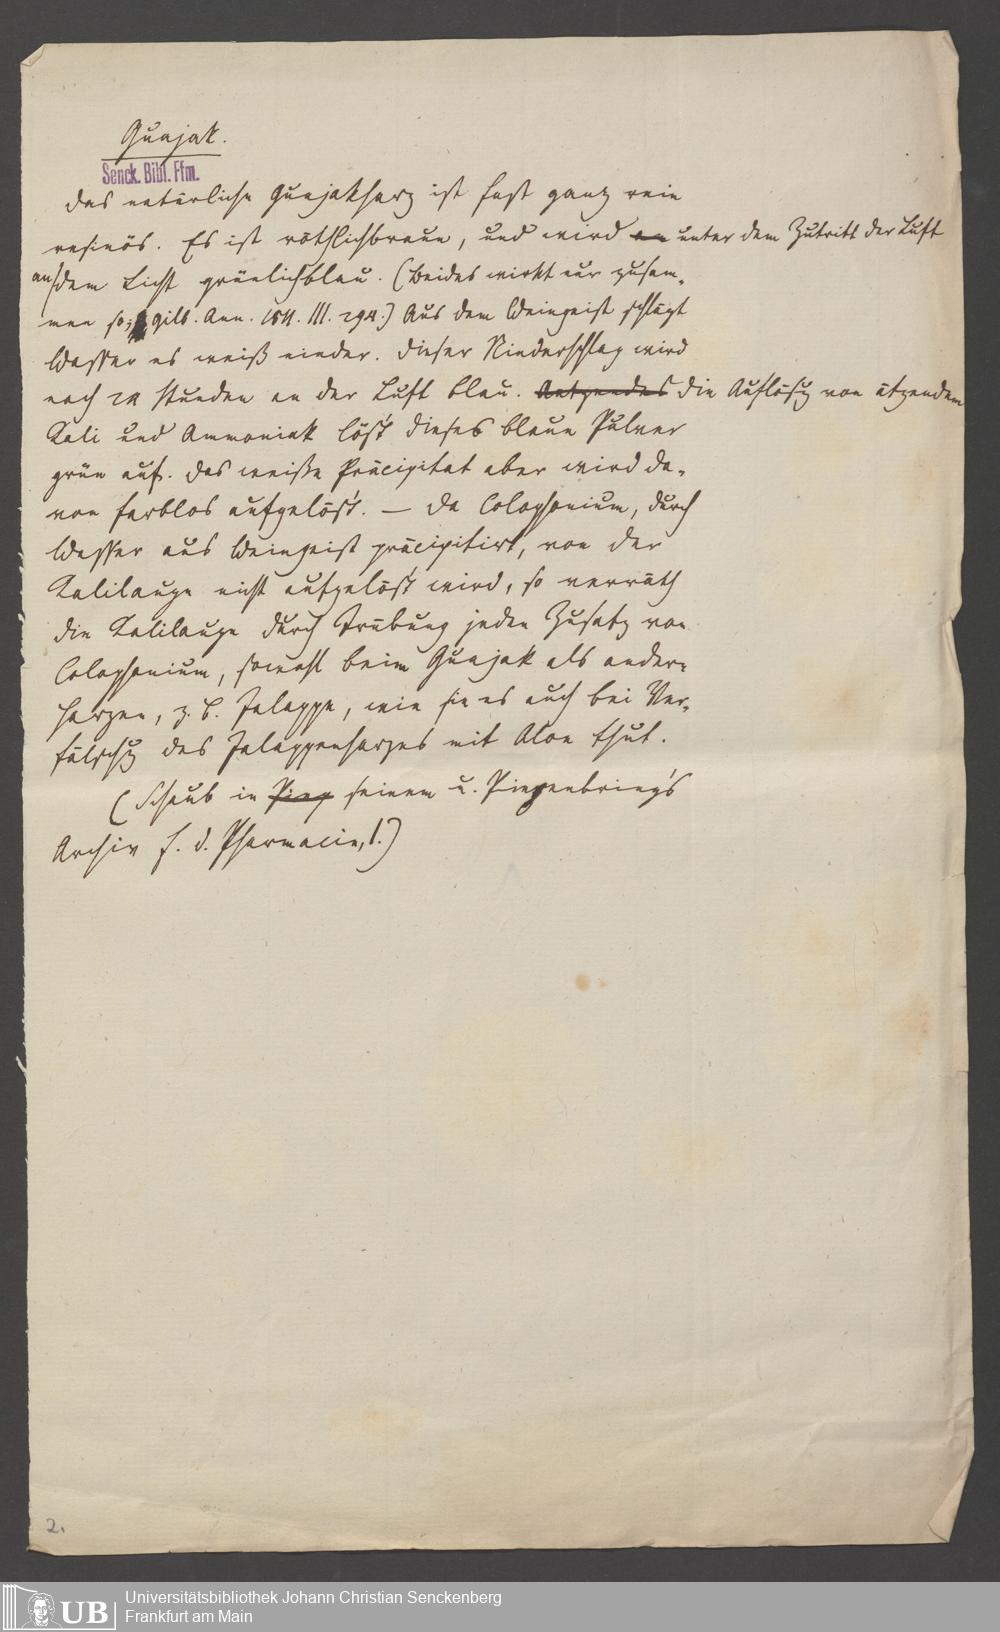 Guajak.
Senck. Bibl. Ffm.
Das natürliche Guajakharz ist fast ganz rein
resinös. Es ist röthlichbraun, und wird an unter dem Zutritt der Luft
an dem Licht grünlichblau. (Beides wirkt nur zusam-
men so; Gilb. Ann. 1811. III. 294.) Aus dem Weingeist schlägt
Wasser es weiß nieder. Dieser Niederschlag wird
nach 24 Stunden an der Luft blau. Aetzendes die Auflösg von ätzendem
Kali und Ammoniak löst dieses blaue Pulver
grün auf. Das weiße Präcipitat aber wird da-
von farblos aufgelöst. — Da Colophonium, durch
Wasser aus Weingeist präcipitirt, von der
Kalilauge nicht aufgelöst wird, so verräth
die Kalilauge durch Trübung jeden Zusatz von
Colophonium, sowohl beim Guajak als andern
Harzen, z. B. Jalappe, wie sie es auch bei Ver-
fälschg des Jalappenharzes mit Aloe thut.
(Schaub in Piep seinem u. Piepenbring's
Archiv f. d. Pharmacie, I.)
2.
UB
Universitätsbibliothek Johann Christian Senckenberg
Frankfurt am Main